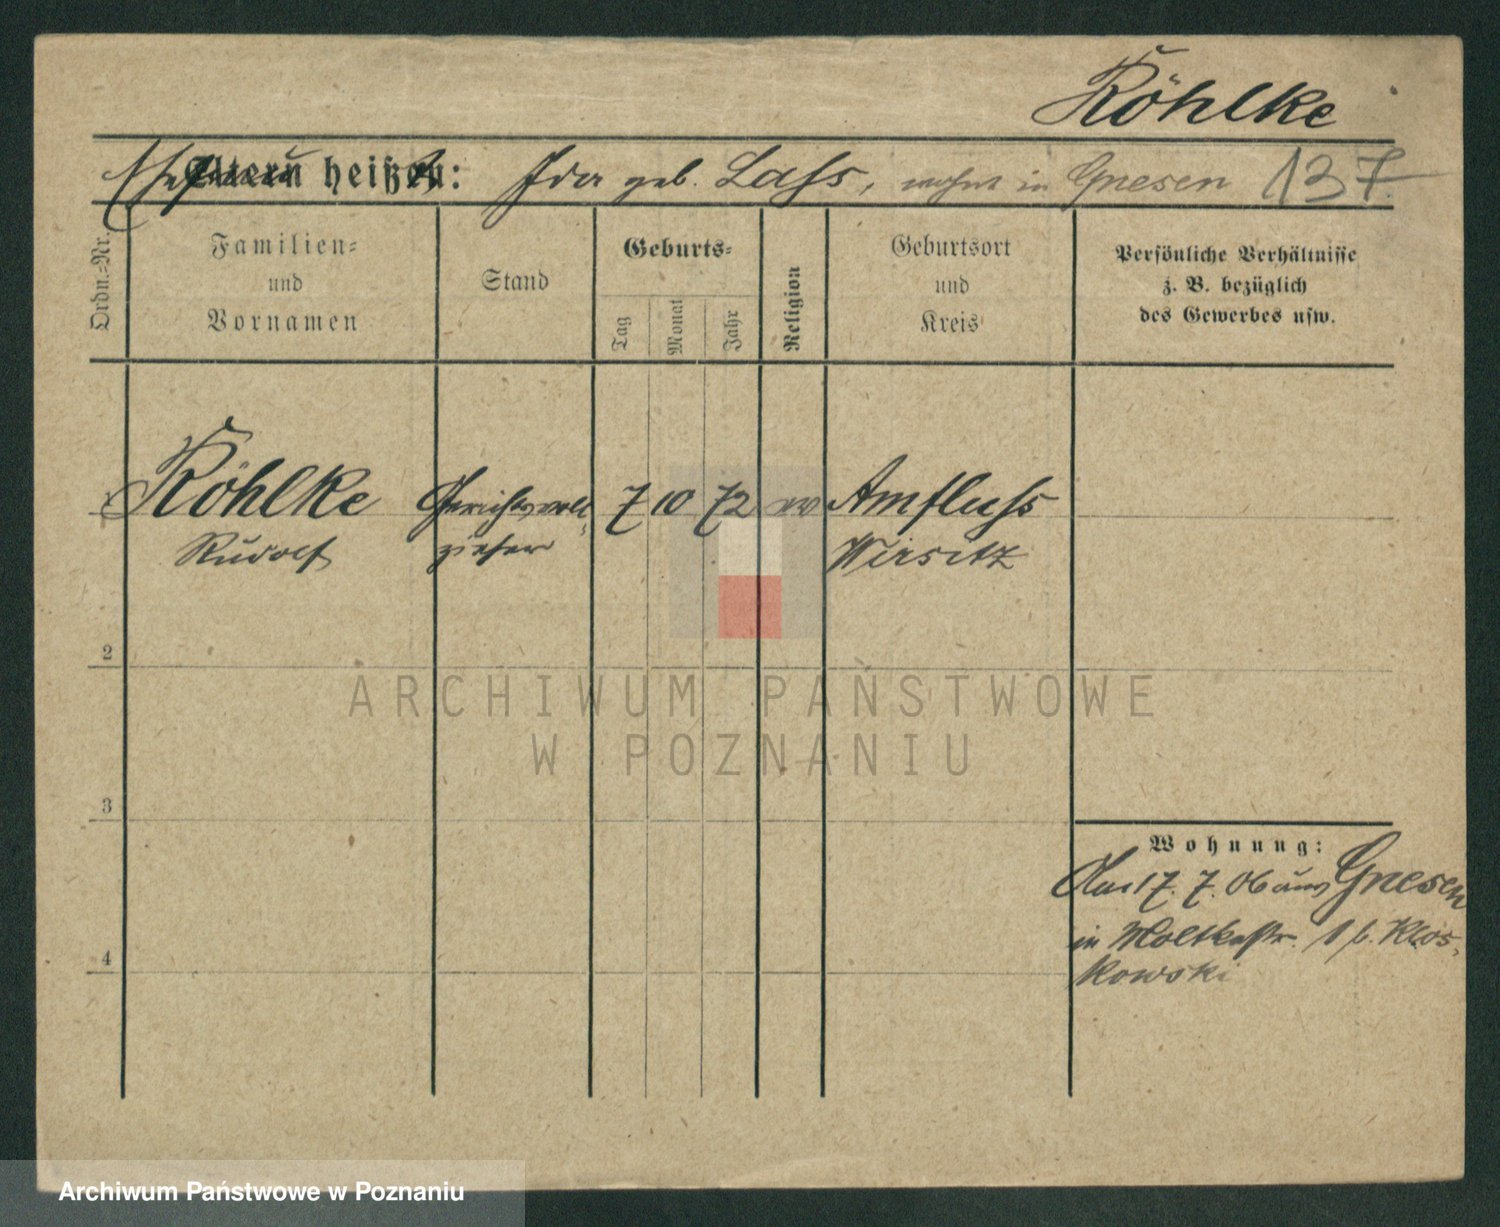 Köhlke
Ehefrau heißt: Ida geb. Lass, wohnt in Gnesen 137
Ordn.-Nr.
Familien-
und
Vornamen
Stand
Geburts-
Tag
Monat
Jahr
Religion
Geburtsort
und
Kreis
Persönliche Verhältnisse
z. B. bezüglich
des Gewerbes usw.
1 Köhlke Gerichtsvoll- 7 10 72 ev Amfluss
Rudolf zieher Wirsitz
2
ARCHIWUM PAŃSTWOWE
W POZNANIU
3
Wohnung:
Am 17. 7. 06 aus Gnesen
in Moltkestr. 1 b. Klos-
kowski
4
Archiwum Państwowe w Poznaniu